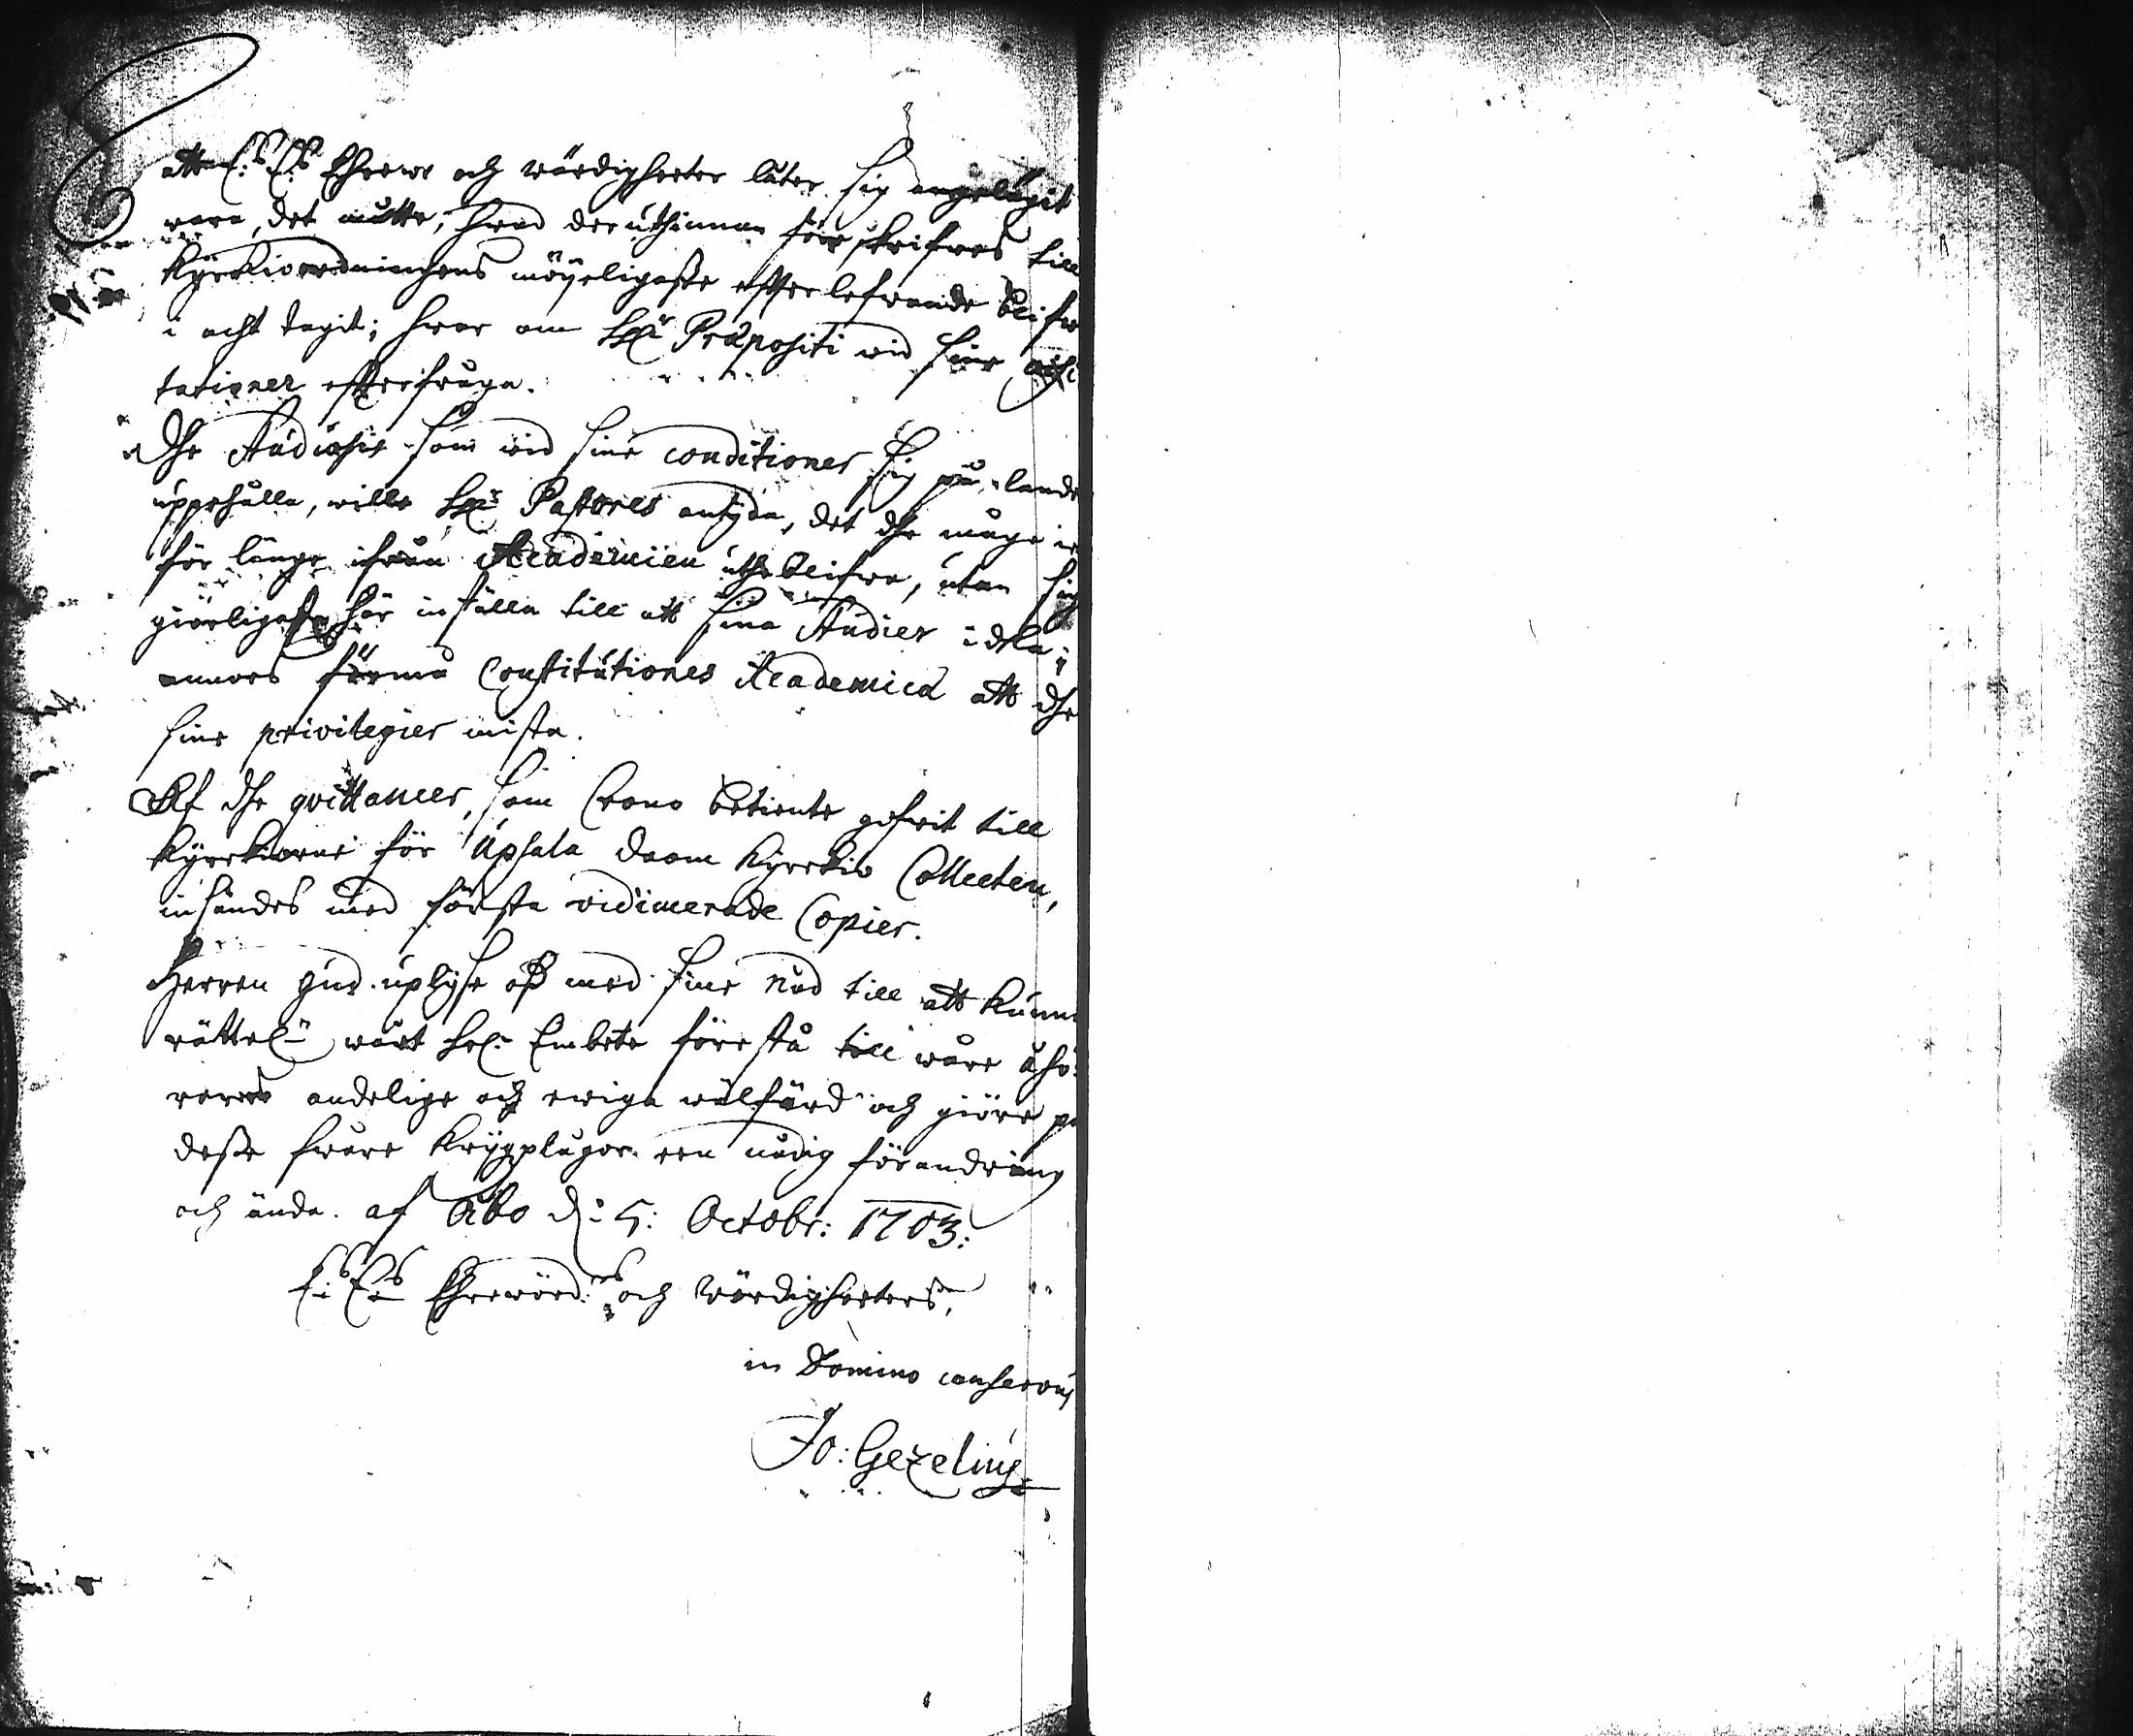 att E:s E:s Ehrew: och wördigheeter låter sig angelägit
wara, det måtte, hwad der uthinnan förskrifwes till
Kyrkioordningens möyeligaste effterlefwande blifw
i acht tagit; hwar om h:r Præpositi wid sine visi
tationer effterfråga.
Dhe Studiosi som wid sine conditioner sig på lande
uppehålla, wille h:r Pastores antyda, det dhe måge ic
för länge ifrån Academien uthe blifwa, utan sig
giörligast här inställa till att sina Studier idka;
annors förmå Constitutiones Academicæ att dhe
sine privilegier mista.
Af dhe qvittancer, som Crono betiente gifwit till
Kyrckiorne för Upsala doom Kyrckio Collecten,
insändes med första vidimerade Copier.
Herren Gud uplyse oß med sine nåd till att kunn
rättel: wårt hel: Embete förestå till wåre åhö:
rares andelige och ewiga wälfärd och giöre på
desse swåre krygzplågor een nådig förandring
och ända. af Åbo d: 5: Octobr: 1703:
E:s E:s Ehrewörd:s och Wördigheeters,
in Domino conservus
Jo: Gezelius